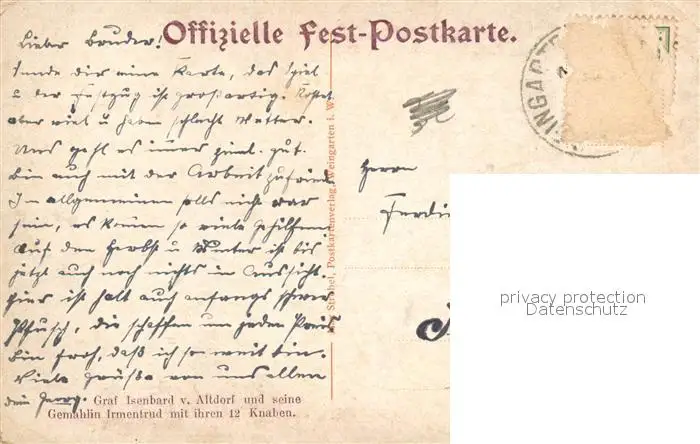 Offizielle Fest-Postkarte.
Lieber Bruder!
sende dir eine Karte, das Spiel
u der Festzug ist großartig. Kostet
aber viel u haben schlecht Wetter.
Uns geht es immer ziml. gut.
bin auch mit der Arbeit zufried
Im allgemeinen solls nicht war
sein, es kommen so viele Gehilfen.
auf den Herbst u Winter ist bis
jetzt auch noch nichts in Aussicht.
hier ist halt auch anfangs schwer
Pfusch, die schaffen um jeden Preis
bin froh, daß ich so weit bin.
Viele Grüße von uns allen
dein Georg.
Graf Isenbard v. Altdorf und seine
Gemahlin Irmentrud mit ihren 12 Knaben.
Strobel, Postkartenverlag, Weingarten i. W.
INGARTE
Herrn
Ferdi
privacy protection
Datenschutz